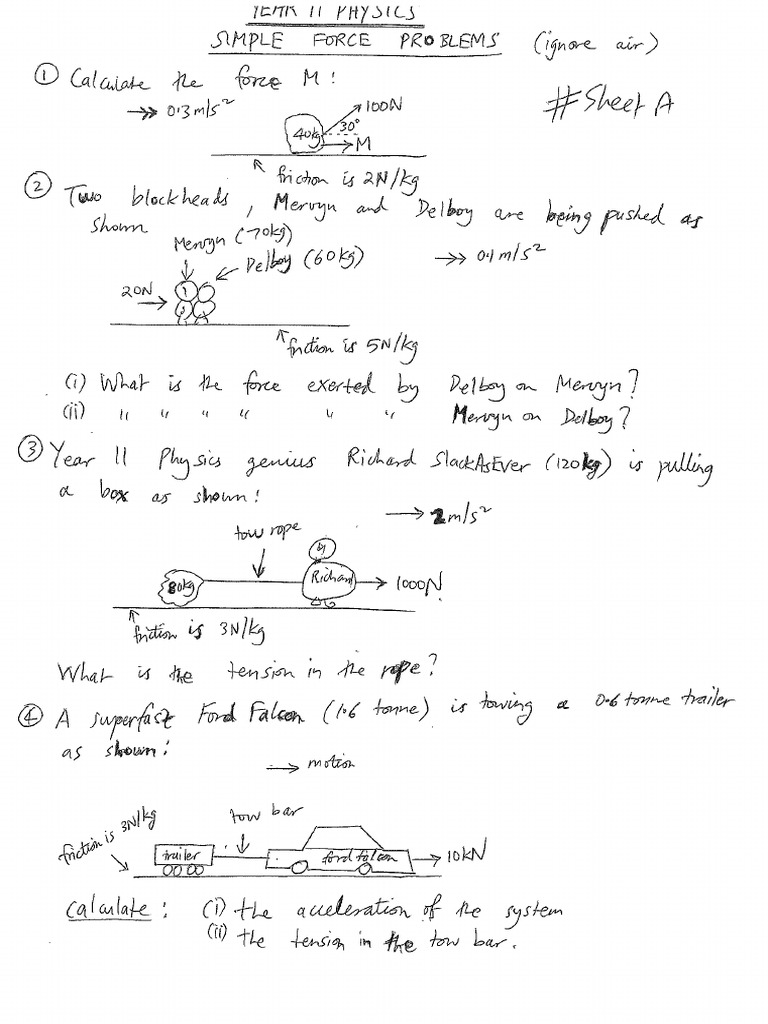 YEAR 11 PHYSICS
SIMPLE FORCE PROBLEMS (ignore air)
① Calculate the force M:
→> 0.3 m/s²
# Sheet A
100N
40kg 30°
M
friction is 2N/kg
② Two blockheads, Mervyn and Delboy are being pushed as
shown
Mervyn (70kg)
Delboy (60kg)
→> 0.1 m/s²
20N
friction is 5N/kg
(i) What is the force exerted by Delboy on Mervyn?
(ii) " " " " " " Mervyn on Delboy?
③ Year 11 Physics genius Richard SlackAsEver (120kg) is pulling
a box as shown:
→ 2m/s²
tow rope
80kg Richard → 1000N
friction is 3N/kg
What is the tension in the rope?
④ A superfast Ford Falcon (1.6 tonne) is towing a 0.6 tonne trailer
as shown:
→ motion
friction is 3N/kg
tow bar
trailer ford falcon → 10kN
Calculate: (i) the acceleration of the system
(ii) the tension in the tow bar.